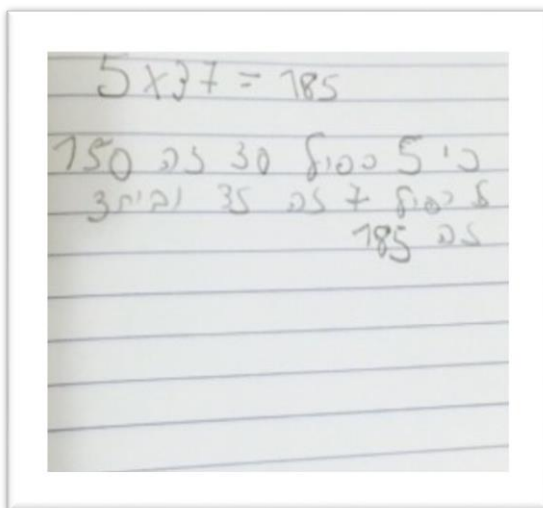 5 x 37 = 185
כי 5 כפול 30 זה 150
5 כפול 7 זה 35 וביחד
זה 185